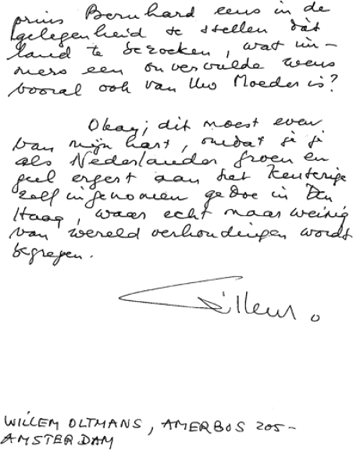 prins Bernhard eens in de
gelegenheid te stellen dat
land te bezoeken, wat im-
mers een onvervulde wens
vooral ook van Uw Moeder is?
Okay; dit moest even
van mijn hart, omdat je je
als Nederlander groen en
geel ergert aan het keuterige
zelfingenomen gedoe in Den
Haag, waar echt maar weinig
van wereld verhoudingen wordt
begrepen.
Willem o
WILLEM OLTMANS, AMERBOS 205-
AMSTERDAM